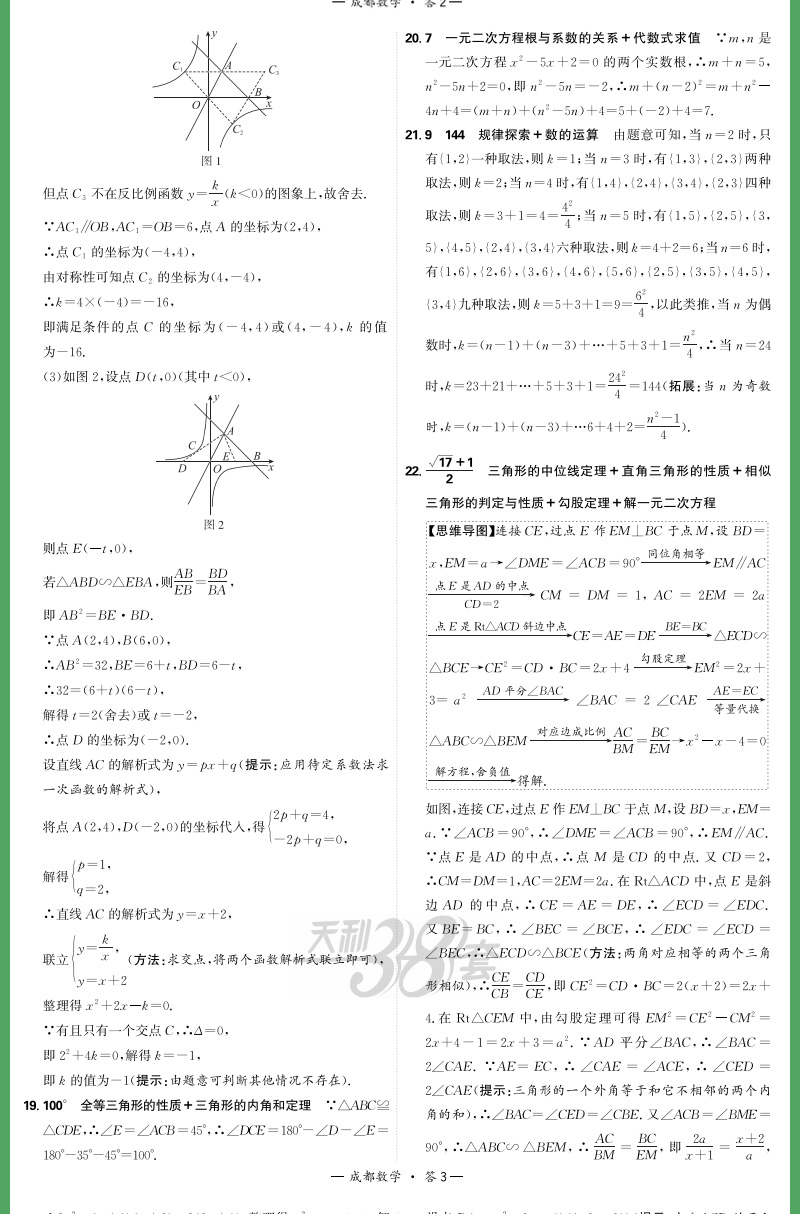 — 成都数学 · 答 2 —
y
C₁
A
C₃
O
B
x
C₂
图 1
但点 C₃ 不在反比例函数 y=k/x(k<0)的图象上,故舍去.
∵AC₁∥OB,AC₁=OB=6,点 A 的坐标为(2,4),
∴点 C₁ 的坐标为(-4,4),
由对称性可知点 C₂ 的坐标为(4,-4),
∴k=4×(-4)=-16,
即满足条件的点 C 的坐标为(-4,4)或(4,-4),k 的值
为-16.
(3)如图 2,设点 D(t,0)(其中 t<0),
y
A
C
E
B
D
O
x
图 2
则点 E(-t,0),
若△ABD∽△EBA,则AB/EB=BD/BA,
即 AB²=BE·BD.
∵点 A(2,4),B(6,0),
∴AB²=32,BE=6+t,BD=6-t,
∴32=(6+t)(6-t),
解得 t=2(舍去)或 t=-2,
∴点 D 的坐标为(-2,0).
设直线 AC 的解析式为 y=px+q(提示:应用待定系数法求
一次函数的解析式),
将点 A(2,4),D(-2,0)的坐标代入,得{2p+q=4,
-2p+q=0,
解得{p=1,
q=2,
∴直线 AC 的解析式为 y=x+2,
联立{y=k/x,
y=x+2
(方法:求交点,将两个函数解析式联立即可),
整理得 x²+2x-k=0.
∵有且只有一个交点 C,∴Δ=0,
即 2²+4k=0,解得 k=-1,
即 k 的值为-1(提示:由题意可判断其他情况不存在).
19. 100° 全等三角形的性质+三角形的内角和定理 ∵△ABC≌
△CDE,∴∠E=∠ACB=45°,∴∠DCE=180°-∠D-∠E=
180°-35°-45°=100°.
20. 7 一元二次方程根与系数的关系+代数式求值 ∵m,n 是
一元二次方程 x²-5x+2=0 的两个实数根,∴m+n=5,
n²-5n+2=0,即 n²-5n=-2,∴m+(n-2)²=m+n²-
4n+4=(m+n)+(n²-5n)+4=5+(-2)+4=7.
21. 9 144 规律探索+数的运算 由题意可知,当 n=2 时,只
有{1,2}一种取法,则 k=1;当 n=3 时,有{1,3},{2,3}两种
取法,则 k=2;当 n=4 时,有{1,4},{2,4},{3,4},{2,3}四种
取法,则 k=3+1=4=4²/4;当 n=5 时,有{1,5},{2,5},{3,
5},{4,5},{2,4},{3,4}六种取法,则 k=4+2=6;当 n=6 时,
有{1,6},{2,6},{3,6},{4,6},{5,6},{2,5},{3,5},{4,5},
{3,4}九种取法,则 k=5+3+1=9=6²/4,以此类推,当 n 为偶
数时,k=(n-1)+(n-3)+⋯+5+3+1=n²/4,∴当 n=24
时,k=23+21+⋯+5+3+1=24²/4=144(拓展:当 n 为奇数
时,k=(n-1)+(n-3)+⋯6+4+2=(n²-1)/4).
22. (√17+1)/2 三角形的中位线定理+直角三角形的性质+相似
三角形的判定与性质+勾股定理+解一元二次方程
【思维导图】连接 CE,过点 E 作 EM⊥BC 于点 M,设 BD=
x,EM=a→∠DME=∠ACB=90° 同位角相等→ EM∥AC
点 E 是 AD 的中点 CD=2→ CM = DM = 1, AC = 2EM = 2a
点 E 是 Rt△ACD 斜边中点→CE=AE=DE BE=BC→ △ECD∽
△BCE→CE²=CD·BC=2x+4 勾股定理→EM²=2x+
3= a² AD 平分∠BAC→ ∠BAC = 2 ∠CAE AE=EC 等量代换→
△ABC∽△BEM 对应边成比例→ AC/BM=BC/EM→x²-x-4=0
解方程,舍负值→得解.
如图,连接 CE,过点 E 作 EM⊥BC 于点 M,设 BD=x,EM=
a.∵∠ACB=90°,∴∠DME=∠ACB=90°,∴EM∥AC.
∵点 E 是 AD 的中点,∴点 M 是 CD 的中点. 又 CD=2,
∴CM=DM=1,AC=2EM=2a.在 Rt△ACD 中,点 E 是斜
边 AD 的中点,∴CE=AE=DE,∴∠ECD=∠EDC.
又 BE=BC,∴∠BEC=∠BCE,∴∠EDC=∠ECD=
∠BEC,∴△ECD∽△BCE(方法:两角对应相等的两个三角
形相似),∴CE/CB=CD/CE,即 CE²=CD·BC=2(x+2)=2x+
4.在 Rt△CEM 中,由勾股定理可得 EM²=CE²-CM²=
2x+4-1=2x+3=a².∵AD 平分∠BAC,∴∠BAC=
2∠CAE. ∵AE=EC,∴∠CAE=∠ACE,∴∠CED=
2∠CAE(提示:三角形的一个外角等于和它不相邻的两个内
角的和),∴∠BAC=∠CED=∠CBE.又∠ACB=∠BME=
90°,∴△ABC∽△BEM,∴AC/BM=BC/EM,即2a/(x+1)=(x+2)/a,
天利38套
— 成都数学 · 答 3 —